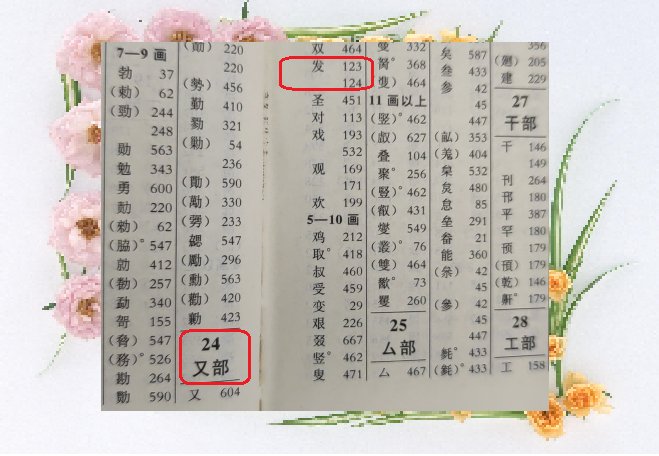 7—9 画
勃 37
(勑) 62
(勁) 244
248
勋 563
勉 343
勇 600
勀 220
(勑) 62
(脇)° 547
勍 412
(勌) 257
勐 340
哿 155
(脅) 547
(務)° 526
勘 264
勩 590
220
220
(勞) 456
勤 410
勠 321
(勦) 54
236
(勩) 590
(勱) 330
(勥) 233
勰 547
(勵) 296
(勳) 563
(勸) 420
勷 423
24
又部
又 604
双 464
发 123
124
圣 451
对 113
戏 193
532
观 169
171
欢 199
5—10 画
鸡 212
取° 418
叔 460
受 459
变 29
艰 226
叕 667
竖° 462
叟 471
叟 332
胬° 368
(隻) 464
11 画以上
(竪)° 462
(叡) 627
叠 104
聚° 256
(豎)° 462
(叡) 431
燮 549
(叢)° 76
(雙) 464
歠° 73
矍 260
25
厶部
厶 467
矣 587
叁 433
参 42
45
447
45
(厸) 353
(羗) 404
枲 532
炱 480
怠 85
垒 291
畚 21
能 360
(叅) 42
45
(參) 42
45
447
毵° 433
(毿)° 433
356
(廻) 205
建 229
27
干部
干 146
149
刊 264
邗 180
平 387
罕 180
顸 179
(頇) 179
(乾) 146
鼾° 179
28
工部
工 158